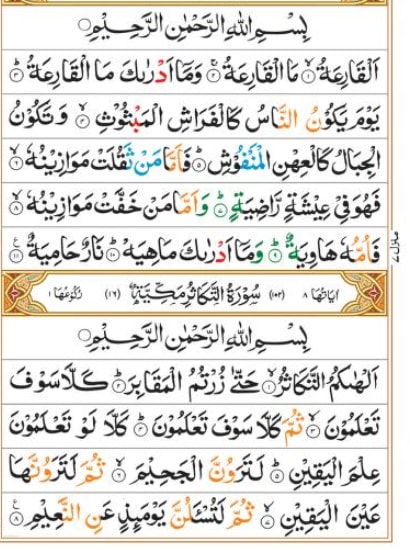 بِسْمِ اللهِ الرَّحْمٰنِ الرَّحِيْمِ
اَلْقَارِعَةُ ۙ مَا الْقَارِعَةُ ۚ وَمَاۤ اَدْرٰىكَ مَا الْقَارِعَةُ ؕ
يَوْمَ يَكُوْنُ النَّاسُ كَالْفَرَاشِ الْمَبْثُوْثِ ۙ وَ تَكُوْنُ
الْجِبَالُ كَالْعِهْنِ الْمَنْفُوْشِ ؕ فَاَمَّا مَنْ ثَقُلَتْ مَوَازِيْنُهٗ ۙ
فَهُوَ فِيْ عِيْشَةٍ رَّاضِيَةٍ ؕ وَ اَمَّا مَنْ خَفَّتْ مَوَازِيْنُهٗ ۙ
فَاُمُّهٗ هَاوِيَةٌ ؕ وَمَاۤ اَدْرٰىكَ مَا هِيَهْ ؕ نَارٌ حَامِيَةٌ
اٰيَاتُهَا ٨ (١٠٢) سُوْرَةُ التَّكَاثُرِ مَكِّيَّةٌ (١٦) رُكُوْعُهَا ١
بِسْمِ اللهِ الرَّحْمٰنِ الرَّحِيْمِ
اَلْهٰىكُمُ التَّكَاثُرُ ۙ حَتّٰى زُرْتُمُ الْمَقَابِرَ ؕ كَلَّا سَوْفَ
تَعْلَمُوْنَ ۙ ثُمَّ كَلَّا سَوْفَ تَعْلَمُوْنَ ؕ كَلَّا لَوْ تَعْلَمُوْنَ
عِلْمَ الْيَقِيْنِ ؕ لَتَرَوُنَّ الْجَحِيْمَ ۙ ثُمَّ لَتَرَوُنَّهَا
عَيْنَ الْيَقِيْنِ ۙ ثُمَّ لَتُسْـَٔلُنَّ يَوْمَئِذٍ عَنِ النَّعِيْمِ
منزل ٧